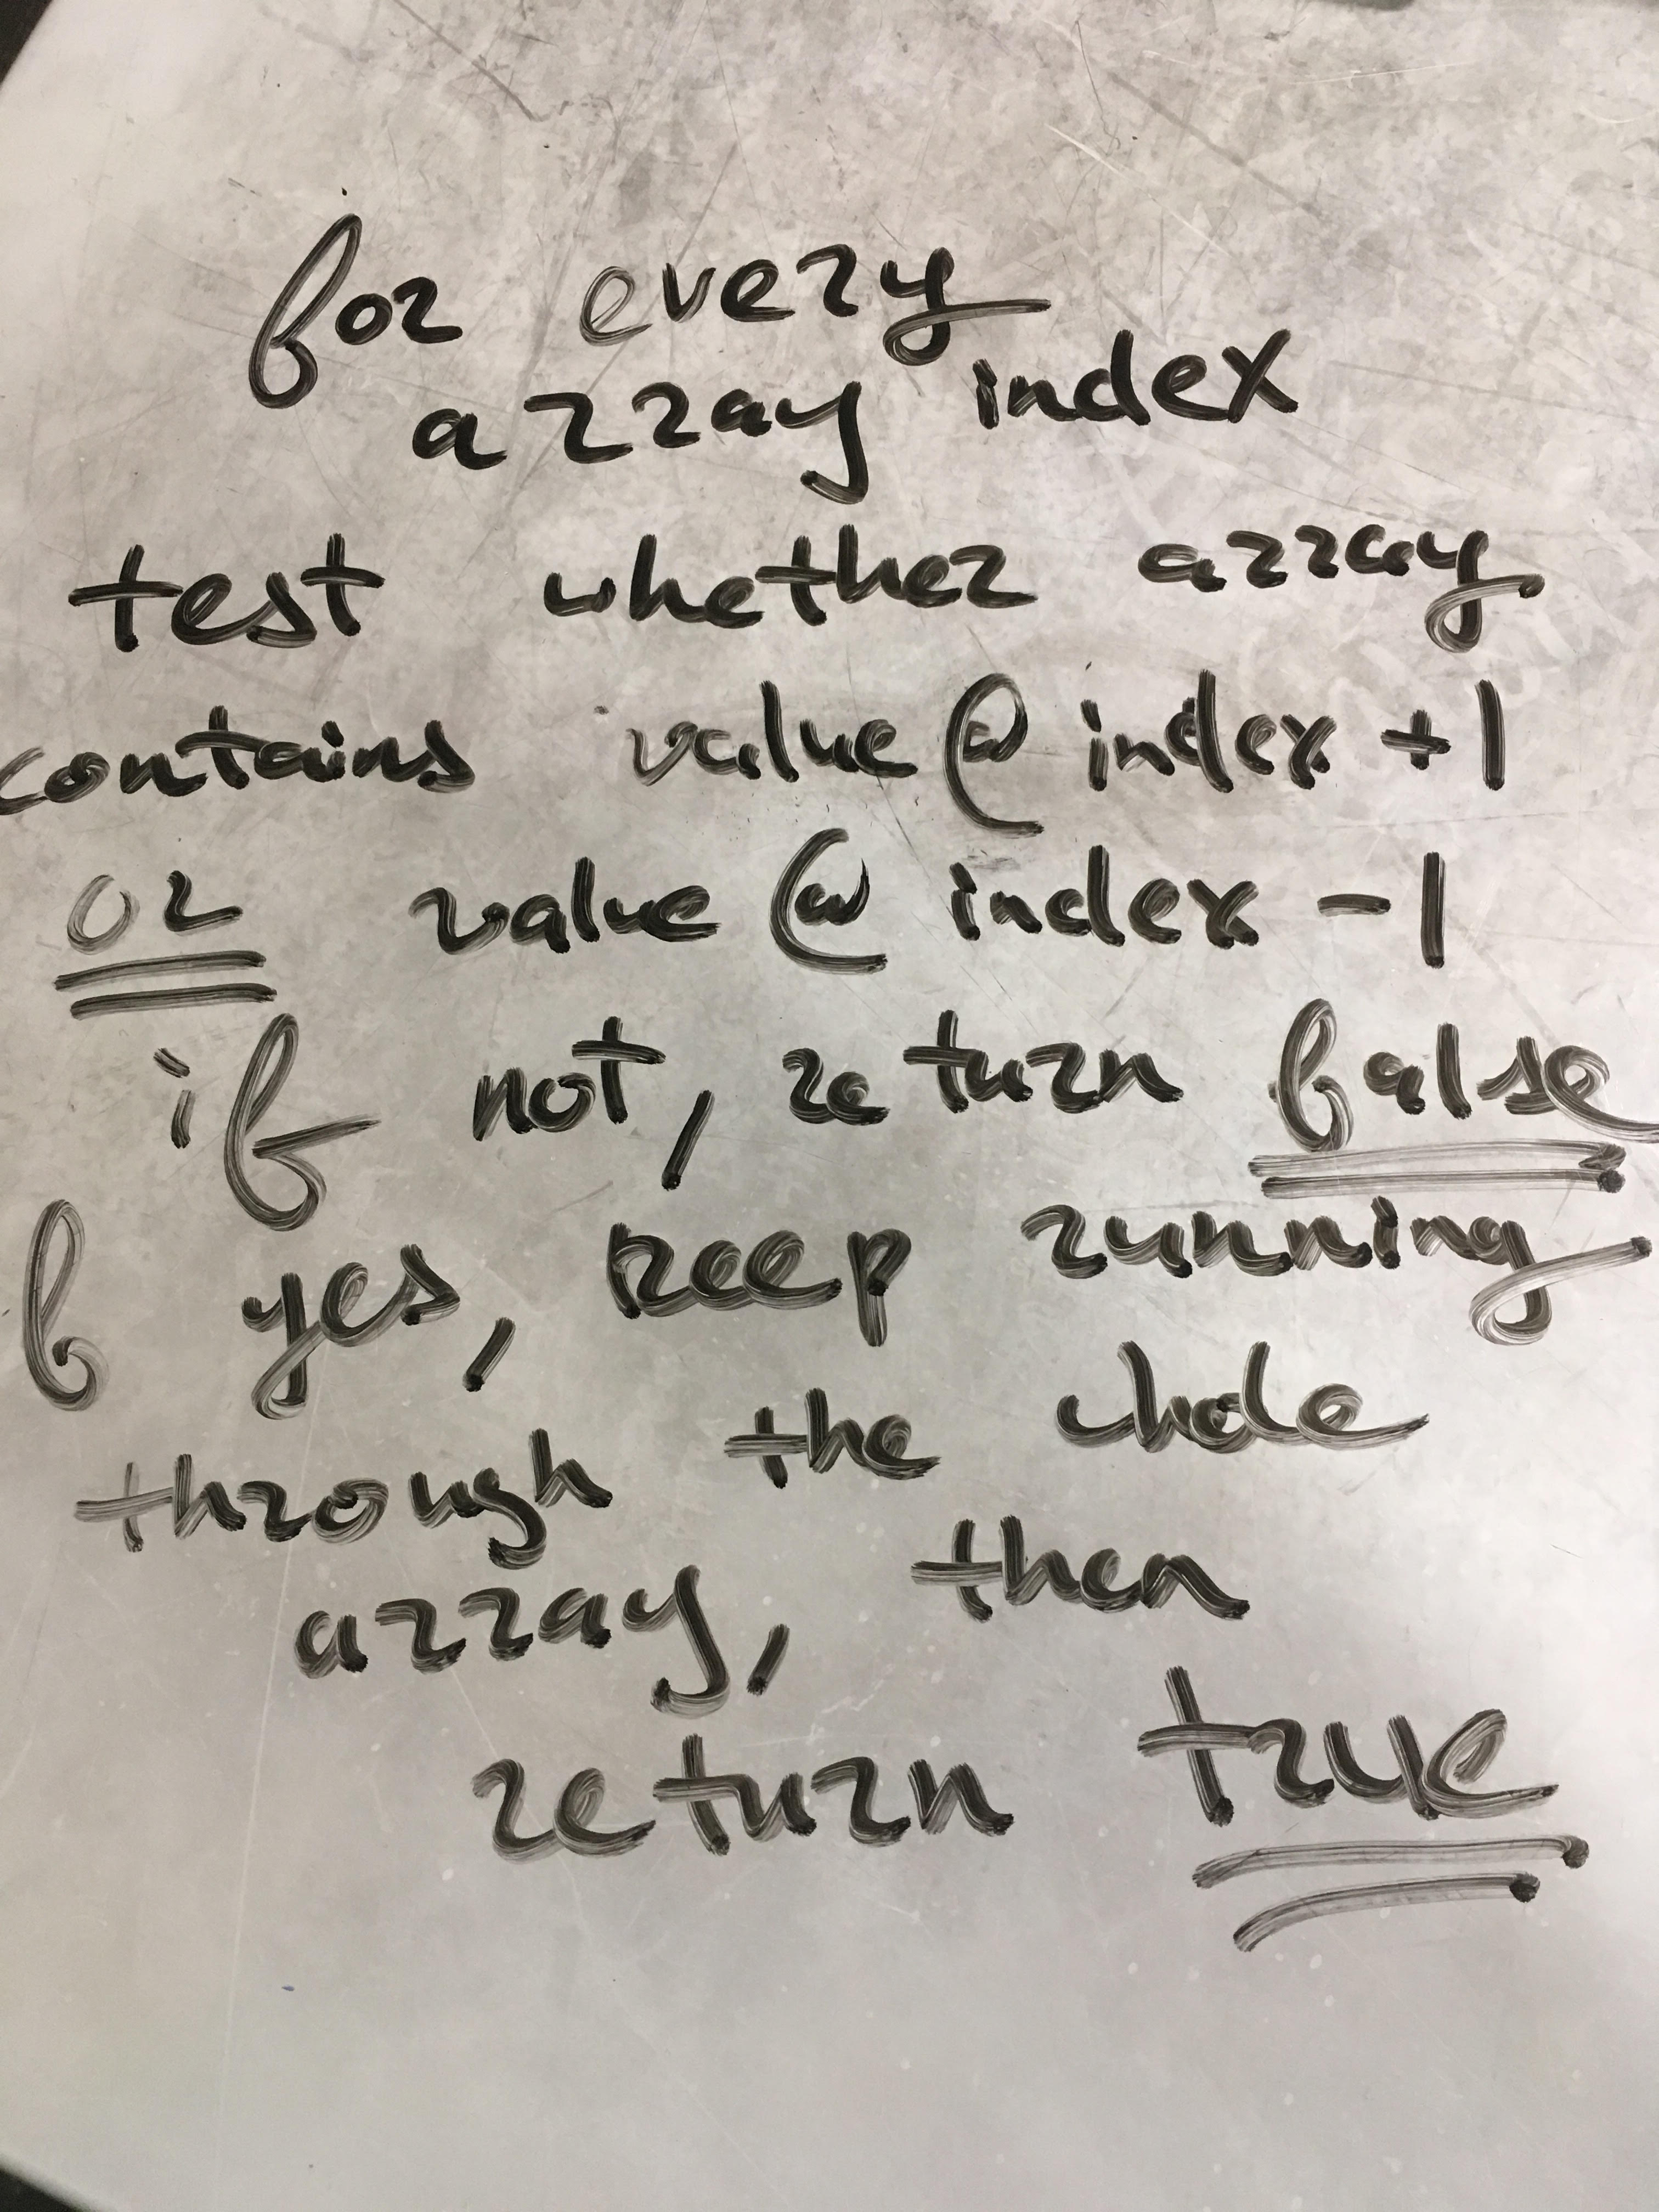 for every
array index
test whether array
contains value @ index +1
or value @ index -1
if not, return false
f yes, keep running
through the whole
array, then
return true